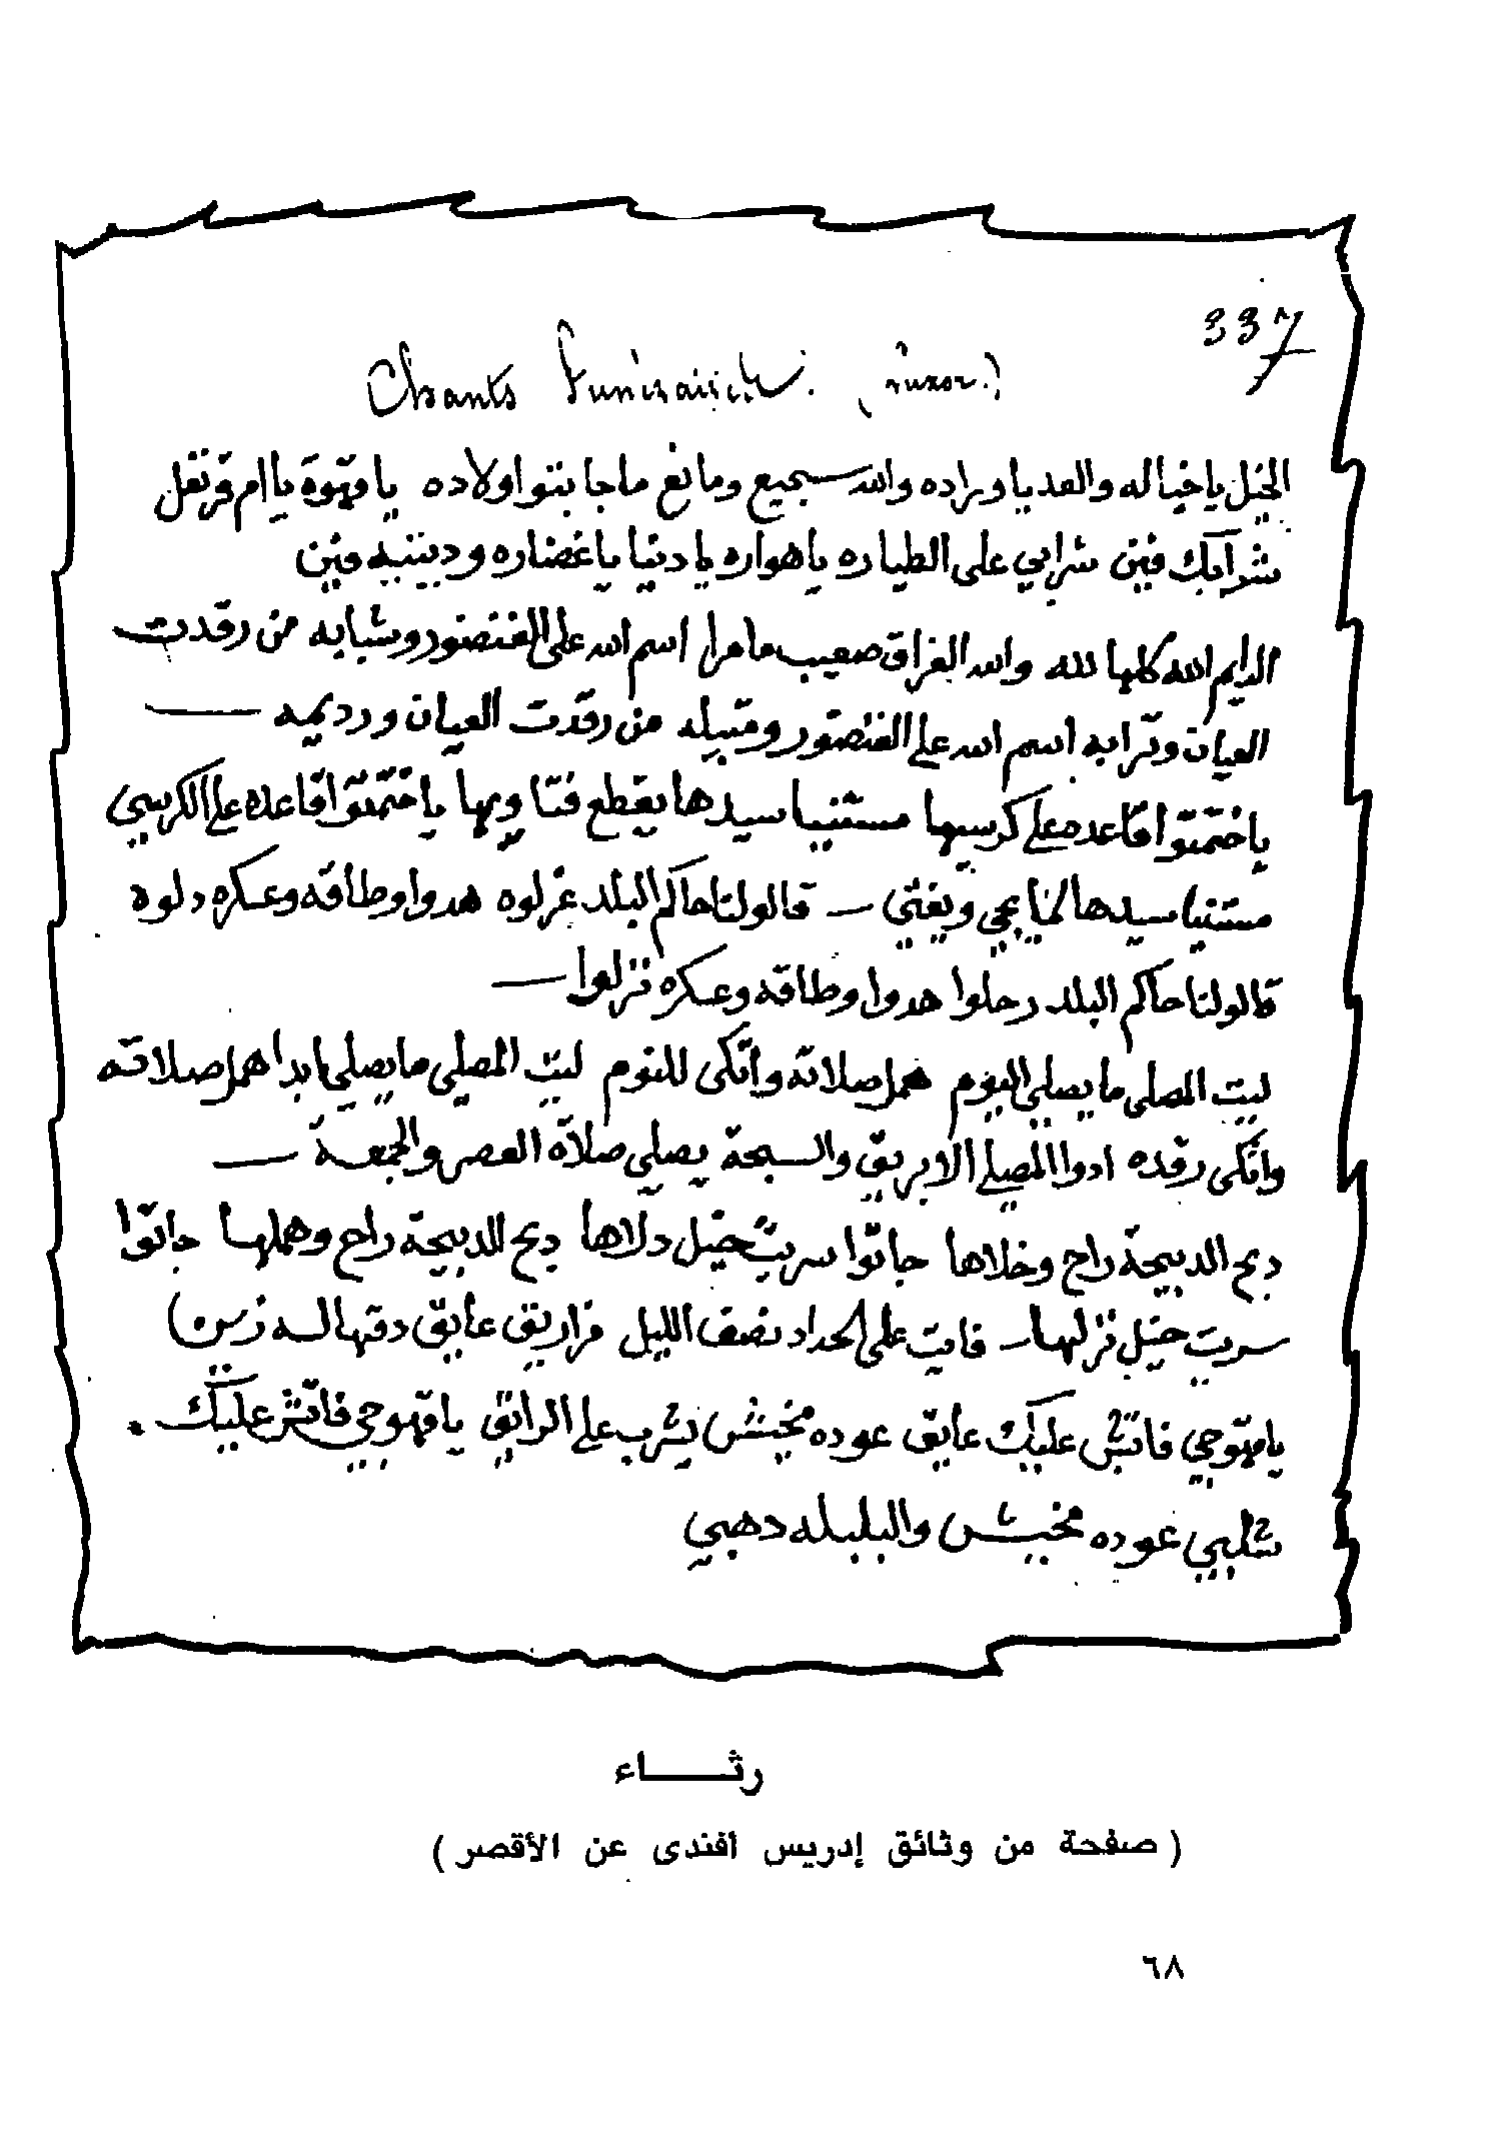 337
Chants funéraires. (Luxor.)
الخيل يا خياله والعد يا وراده والله سبجيع وما نغ ما جا بنتوا ولاده يا قهوة يا ام قرنفل
شرابك فين شرابي على الطياره يا هواره يا دنيا يا غضاره ودبينبيه فين
الدايم الله كلها لله والله الفراق صعيب ما مرا اسم الله على الغنضور وشبابه من رقدت
العيان وترابه اسم الله على الغنضور ومتبيله من رقدت العيان ورديمه —
يا ختمتوا قاعده على كرسيها مستنيا سيدها يقطع فتاويها يا ختمتوا قاعده على الكرسي
مستنيا سيدها لما يجي ويفتي — قالولنا حاكم البلد عزلوه هدوا وطاقه وعسكره دلوه
قالولنا حاكم البلد رحلوا هدوا وطاقه وعسكره نزلوا —
ليت المصلي ما يصلي اليوم همل صلاته واتكى للنوم ليت المصلي ما يصلي ابدا همل صلاته
واتكى رقده ادوا المصلي الابريق والسبحة يصلي صلاة العصر والجمعة —
دبح الدبيحة راح وخلاها جاتوا سربت خيل دلاها دبح الدبيحة راح وهملها جاتوا
سربت خيل نزلها — فاتت على الحداد نصف الليل مزاريق عايق دقها له زين)
يا قهوجي فاتش عليك عايق عوده مخيش يشرب على الرايق يا قهوجي فاتش عليك
شلبي عوده مخيش والبلبله دهبي
رثـــاء
(صفحة من وثائق إدريس أفندى عن الأقصر)
٦٨